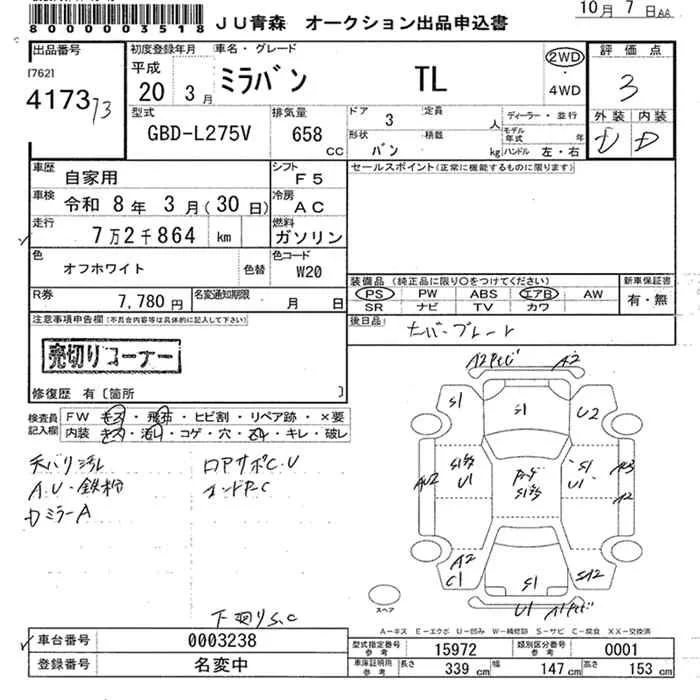 8000003518
JU青森 オークション出品申込書
10月7日AA
出品番号
[762]
4173 73
初度登録年月
平成
20 3月
車名・グレード
ミラバン TL
2WD
・
4WD
評価点
3
外装 内装
D D
型式
GBD-L275V
排気量
658 CC
ドア 3
定員 人
形状 バン
積載 kg
ディーラー・並行
モデル年式 年
ハンドル 左・右
車歴 自家用
シフト F5
セールスポイント(正常に機能するものに限ります)
車検 令和 8年 3月(30日)
冷房 AC
走行 7万2千864 km
燃料 ガソリン
色 オフホワイト 色替
色コード W20
装備品 (純正品に限り〇をつけてください)
PS PW ABS エアB AW
SR ナビ TV カワ
新車保証書
有・無
R券 7,780円
名変通知期限 月 日
後日品
ナンバープレート
注意事項申告欄(不具合内容等は具体的に記入して下さい)
売切りコーナー
修復歴 有〔箇所 〕
検査員記入欄
FW キズ・飛石・ヒビ割・リペア跡・×要
内装 キズ・汚れ・コゲ・穴・スレ・キレ・破レ
天バリ汚れ ロアサポC.U
A.U・鉄粉 エンドPC
Dミラー A
下廻りS.C
A2 A2
S1 S1 U2
AU2 U1 S1 U1 A3
A2
A2 C1 S1 SA2
U1
スペア
A-キズ E-エクボ U-凹み W-補修跡 S-サビ C-腐食 XX-交換済
車台番号 0003238
登録番号 名変中
型式指定番号 参考 15972
類別区分番号 参考 0001
車庫証明用 参考
長さ 339 cm 幅 147 cm 高さ 153 cm